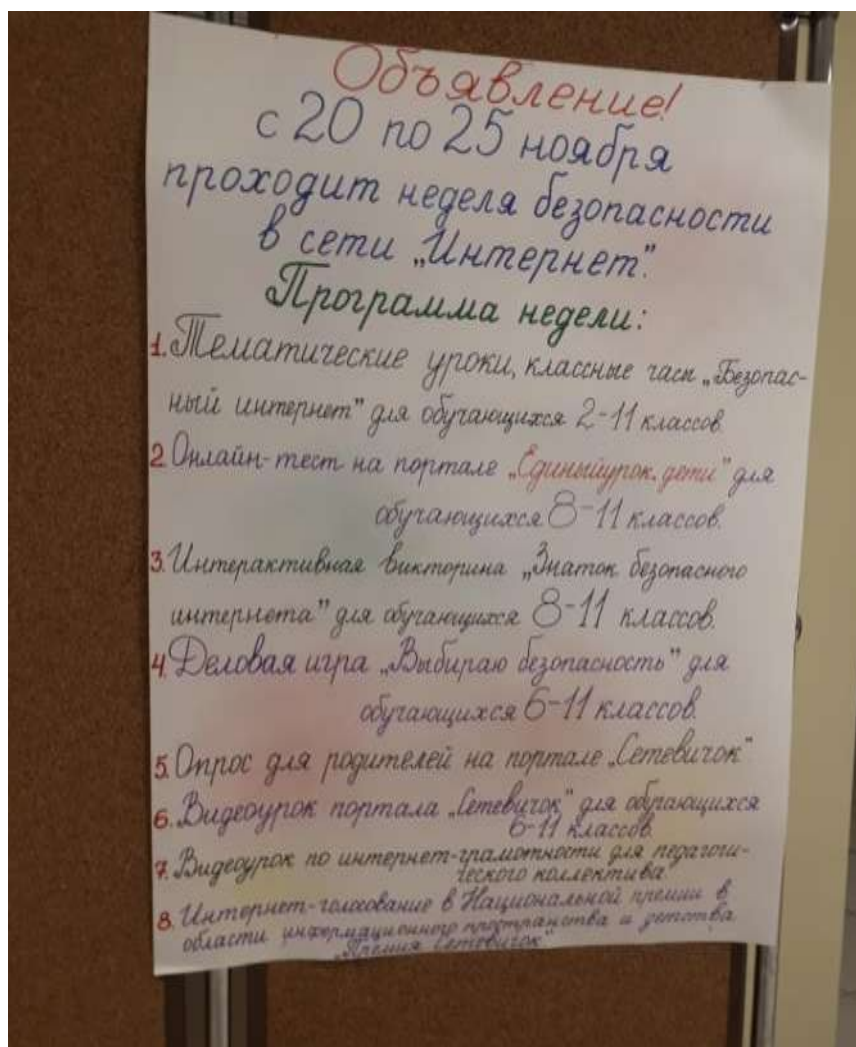 Объявление!
с 20 по 25 ноября
проходит неделя безопасности
в сети „Интернет".
Программа недели:
1. Тематические уроки, классные часы „Безопас-
ный интернет" для обучающихся 2-11 классов.
2 Онлайн-тест на портале „Единыйурок.дети" для
обучающихся 8-11 классов.
3. Интерактивная викторина „Знаток безопасного
интернета" для обучающихся 8-11 классов.
4. Деловая игра „Выбираю безопасность" для
обучающихся 6-11 классов.
5. Опрос для родителей на портале „Сетевичок"
6. Видеоурок портала „Сетевичок" для обучающихся
6-11 классов.
7. Видеоурок по интернет-грамотности для педагоги-
ческого коллектива.
8. Интернет-голосование в Национальной премии в
области информационного пространства и детства
„Премия Сетевичок"